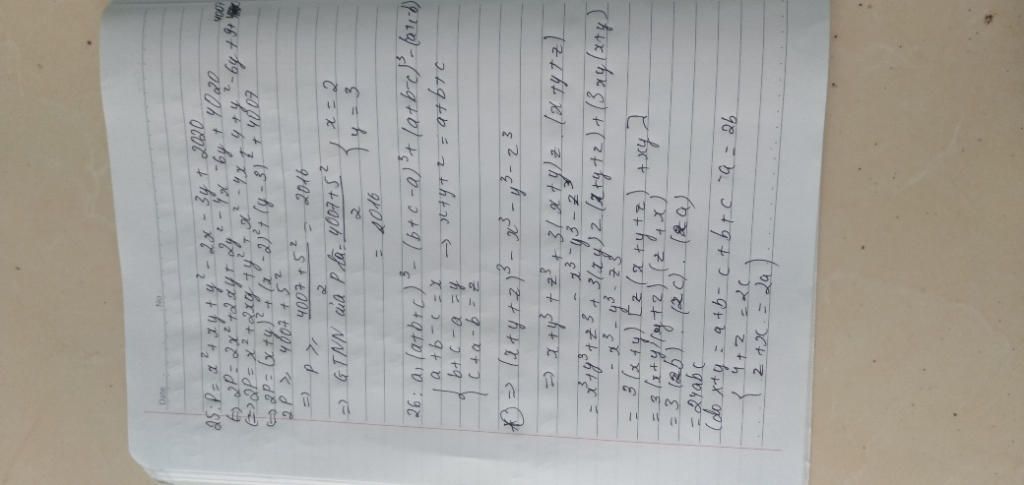 Date
No.
25: P = x² + xy + y² - 2x - 3y + 2020
(=) 2P = 2x² + 2xy + 2y² - 4x - 6y + 4020
(=) 2P = x² + 2xy + y² + x² - 4x + 4 + y² - 6y + 9 + 4007
(=) 2P = (x+y)² + (x-2)² + (y-3)² + 4007
2P ≥ 4007 + 5²
=> P ≥ (4007+5²)/2 = 2016
=> GTNN của P là = (4007+5²)/2 { x = 2
y = 3
= 2016
26: a, (a+b+c)³ - (b+c-a)³ + (a+b-c)³ - (a+c-b)
{ a+b-c = x
b+c-a = y
c+a-b = z
→ x+y+z = a+b+c
=> (x+y+z)³ - x³ - y³ - z³
=> x+y³ + z³ + 3(x+y)z (x+y+z)
- x³ - y³ - z³
= x³+y³+z³ + 3(xy)z (x+y+z) + (3xy(x+y)
- x³ - y³ - z³
= 3(x+y) [z(x+y+z) + xy]
= 3(x+y)(y+z)(z+x)
= 3(2b).(2c).(2a)
= 24abc
(do x+y = a+b-c+b+c-a = 2b
{ y+z = 2c
z+x = 2a)